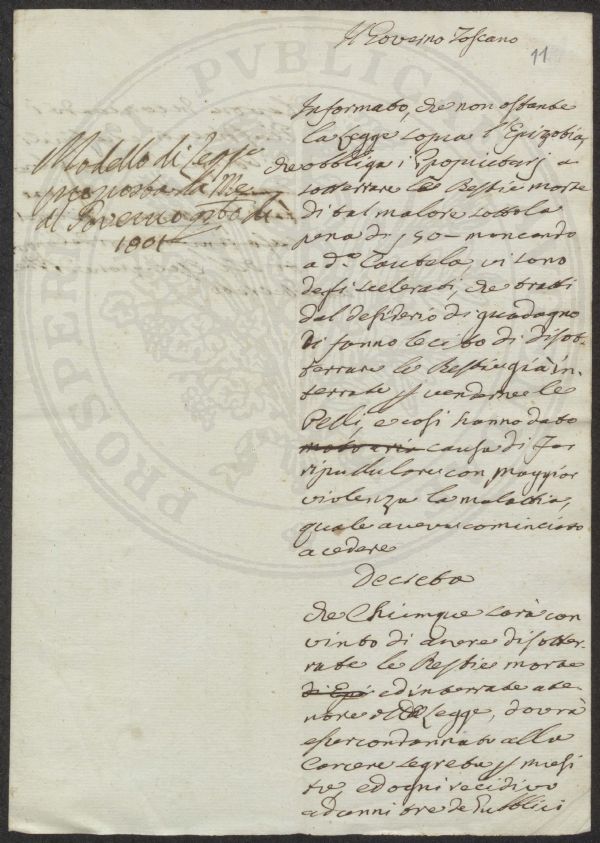 Il Governo Toscano
11
Informato, che non ostante
la Legge sopra l'Epizozia,
che obbliga i Proprietarj a
sotterrare le Bestie morte
di tal malore sotto la
pena di 50 mancando
a d.ª Cautela, vi sono
degli scelerati, che tratti
dal desiderio di guadagno
si fanno lecito di disot-
terrare le Bestie già in-
terrate p vendere le
Pelli, e così hanno dato
causa di far
ripullulare con maggior
violenza la malattia,
quale aveva cominciato
a cedere
Decreta
che Chiunque sarà con
vinto di avere disotter-
rate le Bestie morte
di Epi ed interrate a te-
nore della Legge, dovrà
esser condannato alla
Carcere segreta p mesi
tre, ed ogni recidivo
ad anni tre de Pubblici
Modello di Legge
proposta da me
al Governo
1801
PROSPERI
PVBLICAE